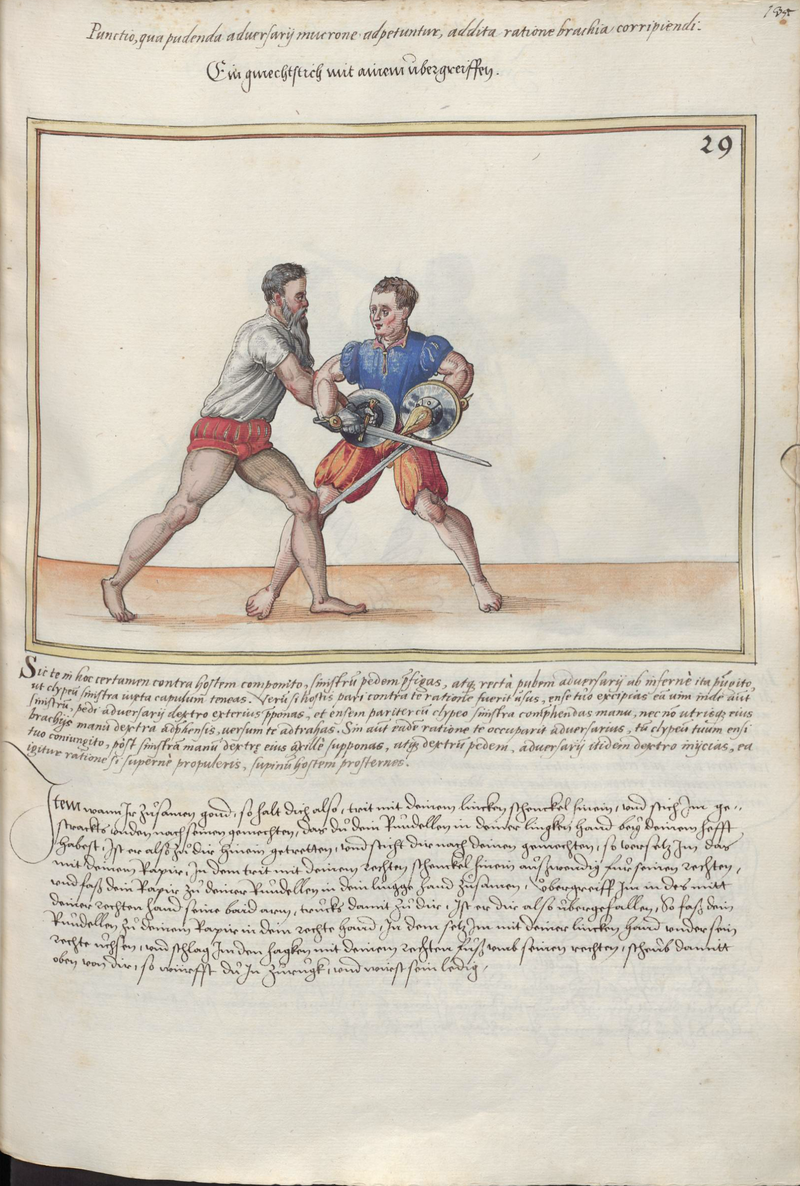 Punctio, qua pudenda adversarij mucrone adpetuntur, addita ratione brachia corripiendi.
Ein gmechtstich mit ainem übergreiffen.
29
Sic te in hoc certamen contra hostem componito, sinistrū pedem p̄figas, atq; recta pubem adversarij ab inferne ita pūgito,
ut clypeū sinistra iuxta capulum teneas. Verū si hostis pari contra te ratione fuerit usus, ense tuo excipias eā vim inde aūt
sinistrū, pedi adversarij dextro exterius p̄ponas, et ensem pariter cū clypeo sinistra comphendas manu, nec nō utriq; eius
brachijs manu dextra adphensis, versum te adtrahas. Sin aūt eadē ratione te occuparit adversarius, tu clypeū tuum ensi
tuo coniungito, pōst sinistrā manū dextrę eius axillę supponas, atq; dextrū pedem, adversarij itidem dextro inijcias, ea
igitur ratione si superne propuleris, supinū hostem prosternes.
Item wann Ir zůsamen gond, so halt dich also, trit mit deinem lincken schenckel hinein, und stich Im ge⸗
strackts unden nach seinen gemechten, das du dein Rundellen in deiner lingken hand beÿ deinem hefft
habest, Ist er also zů dir hinein getretten, und sticht dir nach deinen gemechten, so versetz Im das
mit deinem Rapir, In dem trit mit deinem rechten schenckel hinein auswendig für seinen rechten,
und fass dein Rapir zů deiner Rundellen in dein lingge hand zůsamen, Übergreiff Im in des mitt
deiner rechten hand seine baid arm, trucks damit zů dir, Ist er dir also übergefallen, So fass dein
Rundellen zů deinem Rapir in dein rechte hand, In dem setz Im mit deiner lincken hand under sein
rechte uchsen, und schlag Im den hagken mit deinem rechten fůß umb seinen rechten, scheub damitt
oben von dir, so wirffst du In zurugk, und wirst sein ledig,